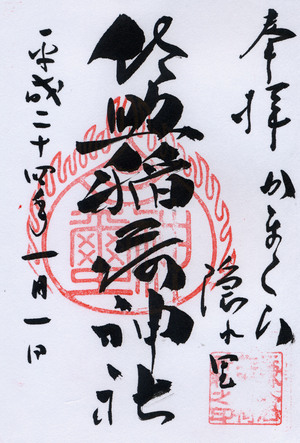 奉拝 かまくら
隠れ里
佐助稲荷神社
平成二十四年一月一日